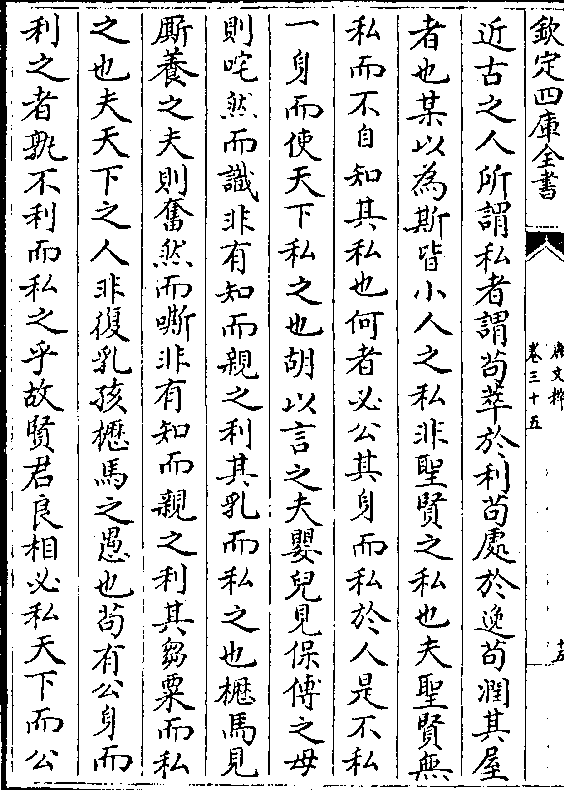 欽定四庫全書
唐文粹
卷三十五
十五
近古之人所謂私者謂苟萃於利苟處於逸苟潤其屋
者也某以為斯皆小人之私非聖賢之私也夫聖賢無
私而不自知其私也何者必公其身而私於人是不私
一身而使天下私之也胡以言之夫嬰兒見保傅之母
則咤然而識非有知而親之利其乳而私之也櫪馬見
厮養之夫則奮然而嘶非有知而親之利其芻粟而私
之也夫天下之人非復乳孩櫪馬之愚也苟有公身而
利之者孰不利而私之乎故賢君良相必私天下而公